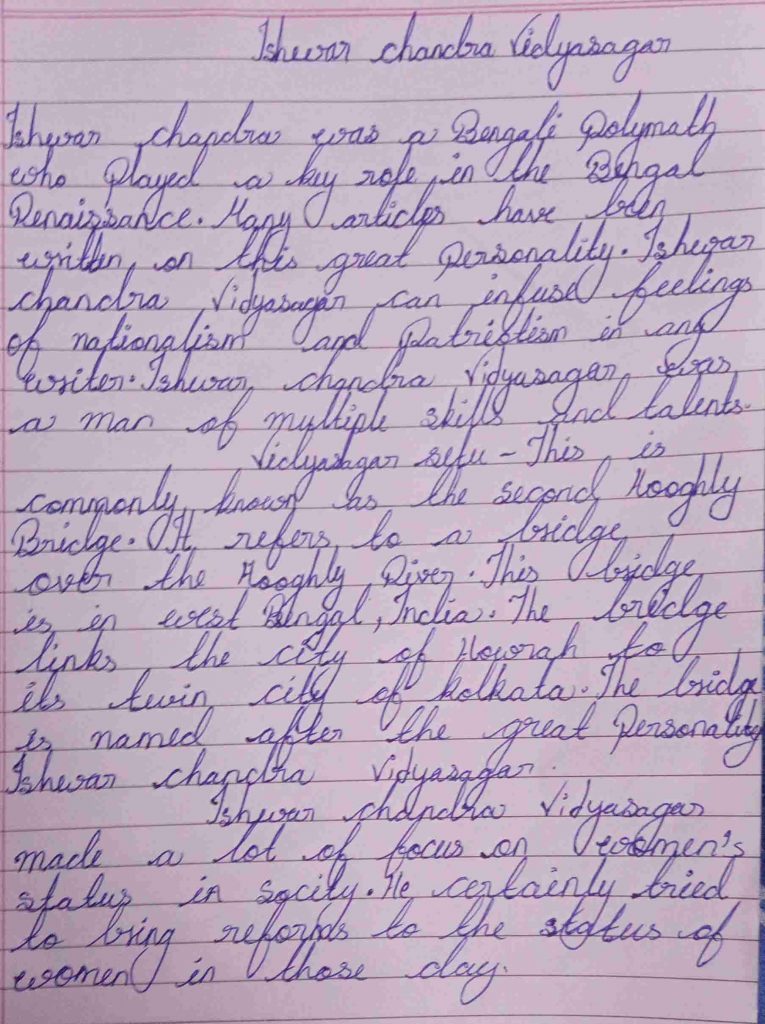 Ishwar chandra Vidyasagar
Ishwar chandra was a Bengali Polymath
who Played a key role in the Bengal
Renaissance. Many articles have been
written on this great Personality. Ishwar
chandra Vidyasagar can infuse feelings
of nationalism and Patriotism in any
writer. Ishwar chandra Vidyasagar was
a man of multiple skills and talents.
Vidyasagar setu - This is
commonly known as the second Hooghly
Bridge. It refers to a bridge
over the Hooghly River. This bridge
is in west Bengal, India. The bridge
links the city of Howrah to
its twin city of kolkata. The bridge
is named after the great Personality
Ishwar chandra Vidyasagar.
Ishwar chandra Vidyasagar
made a lot of focus on women's
status in socity. He certainly tried
to bring reforms to the status of
women in those day.